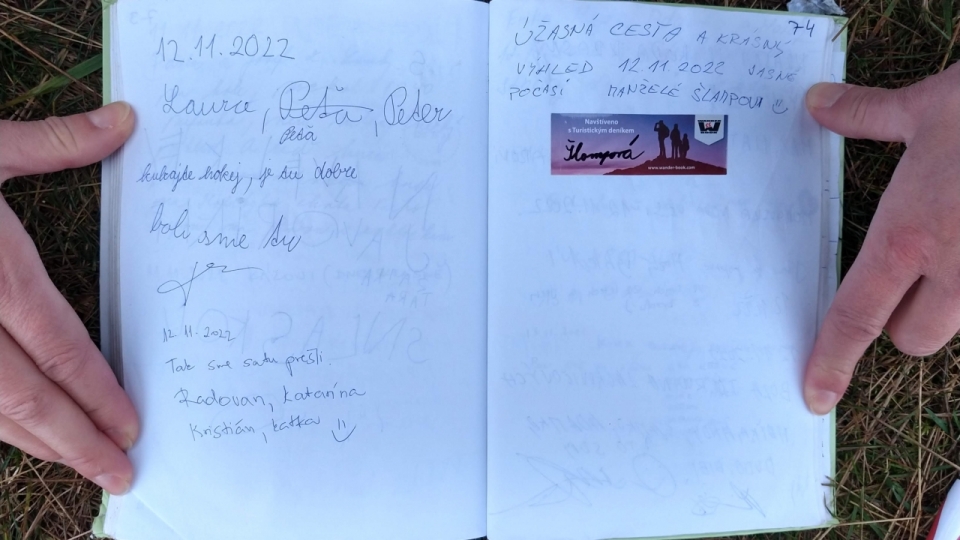 12.11.2022
Laura, Peťa, Peter
Peťa
hokej, je tu dobre
boli sme tu
12.11.2022
Tak sme sa tu prešli.
Radovan, Katarína
Kristián, Katka
74
ÚŽASNÁ CESTA A KRÁSNÝ
VÝHLED 12.11.2022 JASNÉ
POČASÍ MANŽELÉ ŠLAMPOVI
Navštíveno
s Turistickým deníkem
Šlampová
www.wander-book.com